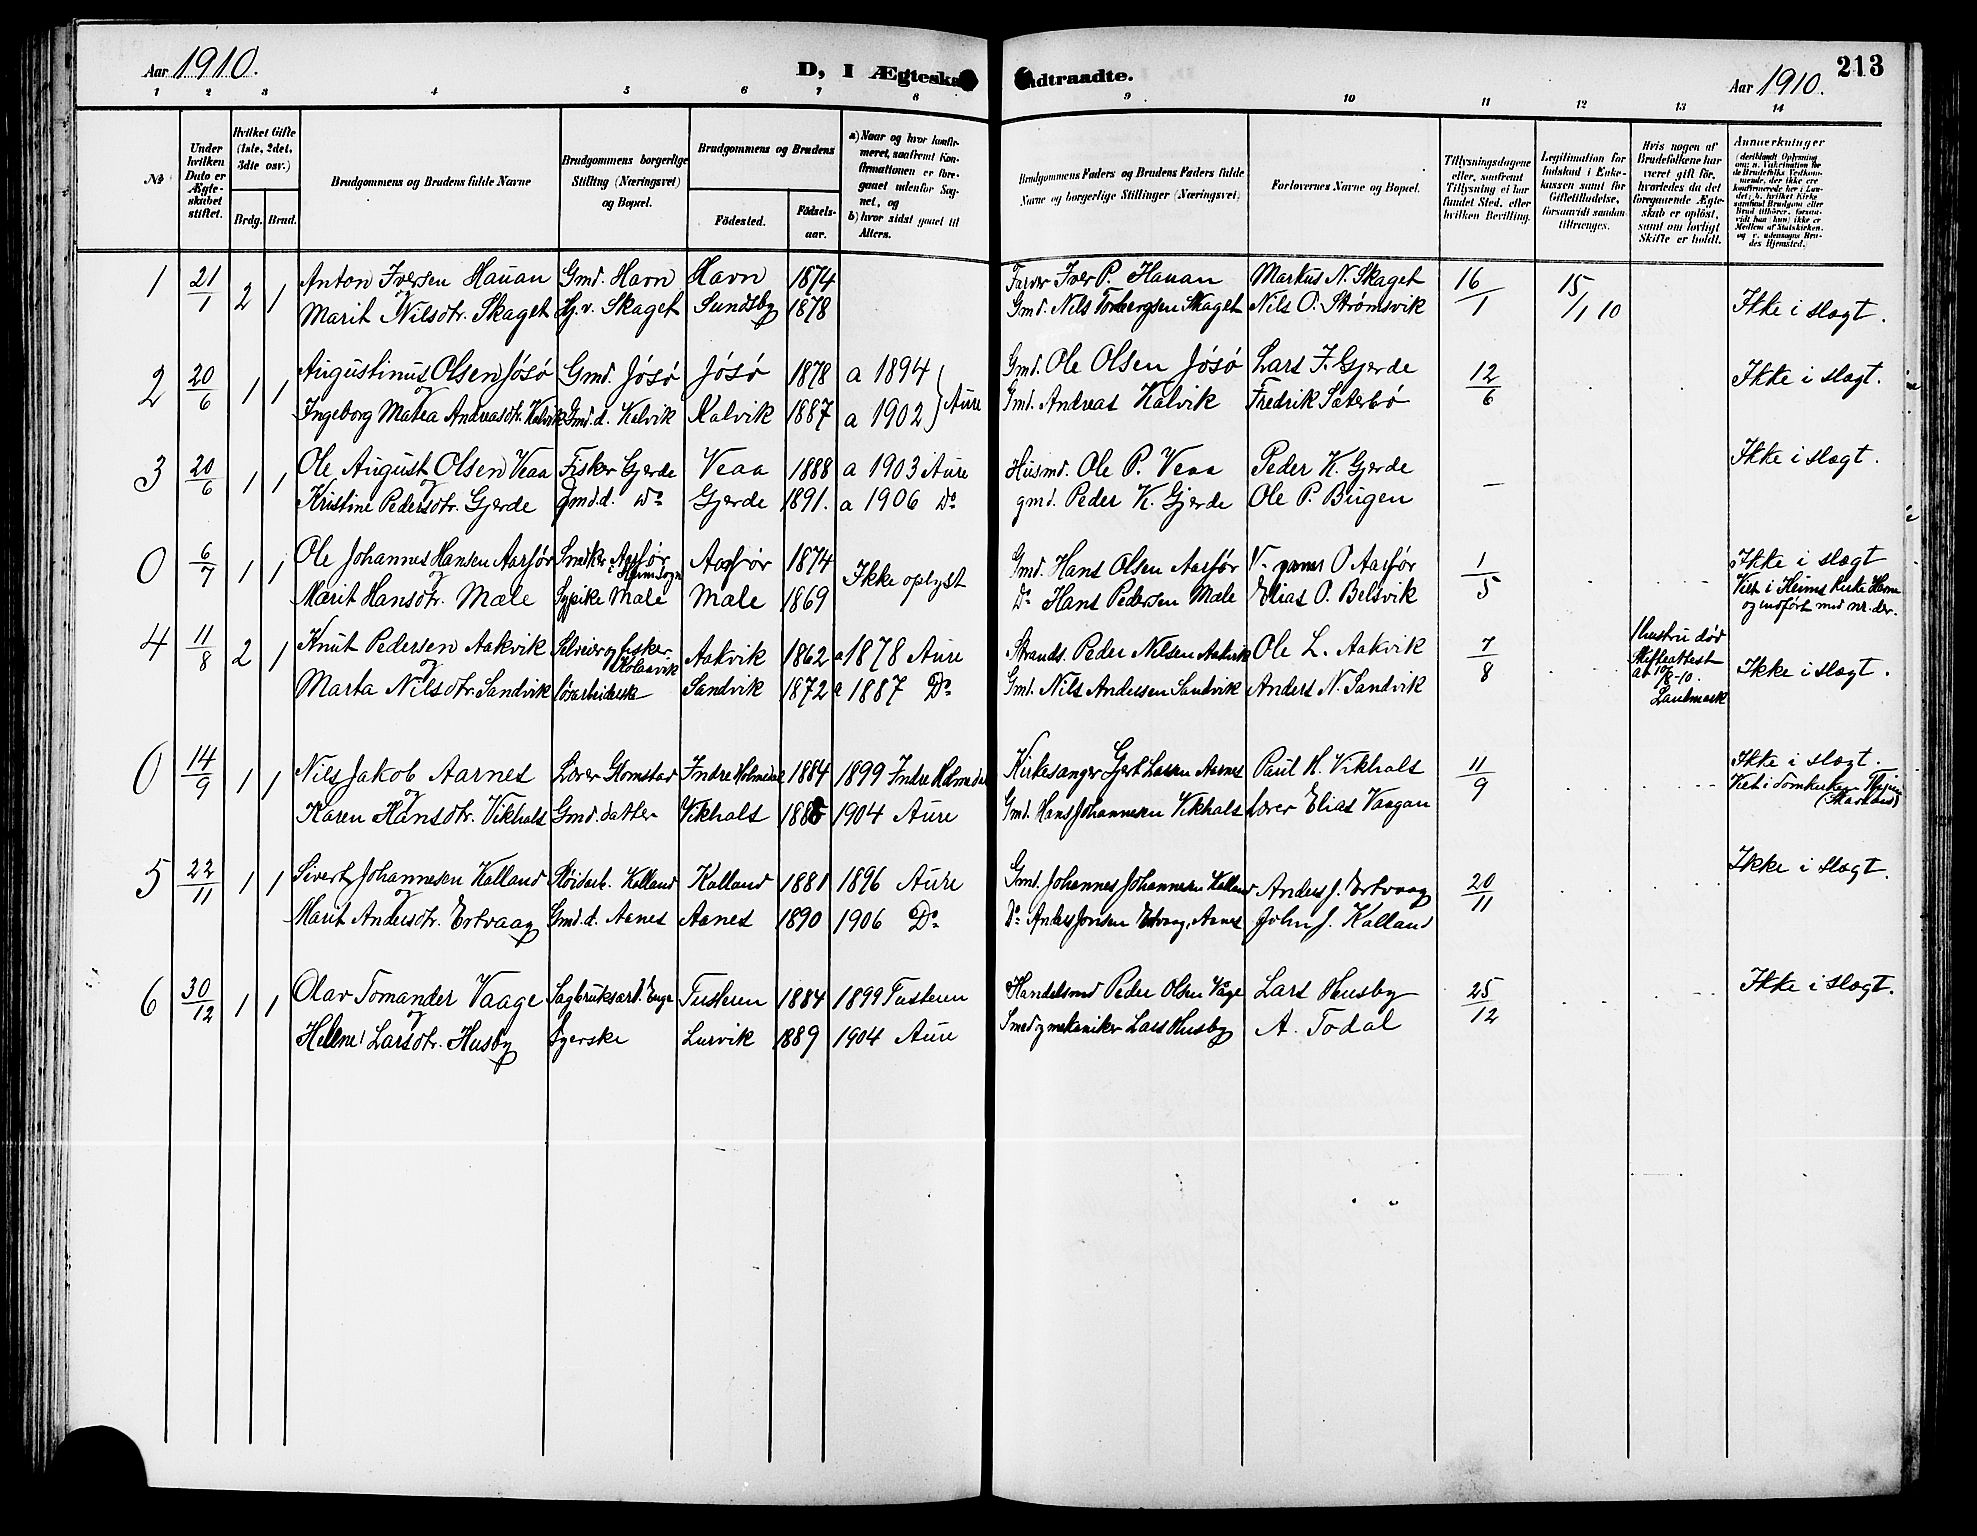 Aar 1910.
D, I Ægteska
ndtraadte.
213
Aar 1910.
1 2 3 4 5 6 7 8 9 10 11 12 13 14
№
Under hvilken Dato er Ægteskabet stiftet.
Hvilket Gifte (1ste, 2det, 3die osv.)
Brdg. Brud.
Brudgommens og Brudens fulde Navne
Brudgommens borgerlige Stilling (Næringsvei) og Bopæl.
Brudgommens og Brudens
Födested. Födsels-aar.
a) Naar og hvor konfirmeret, saafremt Konfirmationen er foregaaet udenfor Sognet, og
b) hvor sidst gaaet til Alters.
Brudgommens Faders og Brudens Faders fulde Navne og borgerlige Stillinger (Næringsvei)
Forlovernes Navne og Bopæl.
Tillysningsdagene eller, saafremt Tillysning ei har fundet Sted, efter hvilken Bevilling.
Legitimation for Indskud i Enkekassen samt for Giftetilladelse, forsaavidt saadan tiltrænges.
Hvis nogen af Brudefolkene har været gift för, hvorledes da det foregaaende Ægteskab er oplöst, samt om lovligt Skifte er holdt.
Anmærkninger
1 21/1 2 1 Anton Iversen Hauan Gmd. Havn Havn 1874 Farver Iver P. Hauan Markus N. Skaget 16/1 15/1 10
og
Marit Nilsdtr. Skaget Gj. v. Skaget Sundsby 1878 Gmd. Nils Torbergsen Skaget Nils O. Strømsvik Ikke i slægt.
2 20/6 1 1 Augustinus Olsen Jøsø Gmd. Jøsø Jøsø 1878 a 1894 Gmd. Ole Olsen Jøsø Lars F. Gjerde 12/6 Ikke i slægt.
og
Ingeborg Matea Andreasdtr. Kalvik Gmd.d. Kalvik Kalvik 1887 a 1902 Aure Gmd. Andreas Kalvik Fredrik Sæterbø
3 20/6 1 1 Ole August Olsen Veaa Fisker Gjerde Veaa 1888 a 1903 Aure Husmd. Ole P. Veaa Peder K. Gjerde Ikke i slægt.
og
Kristine Pedersdtr. Gjerde gmd.d. Do Gjerde 1891. a 1906 Do gmd. Peder K. Gjerde Ole P. Bugen —
0 6/7 1 1 Ole Johannes Hansen Aasfør Snedker Aasfør Aasfør 1874 Ikke oplyst Gmd. Hans Olsen Aasfør O Aasfør 1/5 Ikke i slægt
og
Marit Hansdtr. Mæle Sypike Mæle Mæle 1869 Do Hans Pedersen Mæle Elias O. Belsvik Viet i Heims Kirke Hevne
og indført med nr. der.
4 11/8 2 1 Knut Pedersen Aakvik Selveier og fisker Aakvik 1862 a 1878 Aure Strands. Peder Nilsen Aakvik Ole L. Aakvik 7/8 1 hustru død
og
Marta Nilsdtr. Sandvik Sandvik 1872 a 1887 Do Gmd. Nils Andersen Sandvik Anders N. Sandvik Skifteattest Ikke i slægt.
0 14/9 1 1 Nils Jakob Aarnes Lærer Glomstad Indre Holmedal 1884 1899 Indre Holmedal Kirkesanger Gjert Lassen Aarnes Paul H. Vikhals 11/9 Ikke i slægt.
og
Karen Hansdtr. Vikhals Gmd. datter Vikhals 1904 Aure Gmd. Hans Johannesen Vikhals Lærer Elias Vaagan Viet i domkirken
5 22/11 1 1 Sivert Johannesen Kalland Kalland Kalland 1881 1896 Aure Gmd. Johannes Johannesen Kalland Anders J. Ertvaag 20/11 Ikke i slægt.
og
Marit Andersdtr. Ertvaag Gmd.d. Aanes Aanes 1890 1906 Do Do Anders Jonsen Ertvaag, Aanes John J. Kalland
6 30/12 1 1 Olav Tomander Vaage Sagbruksarb. Enge Tusteren 1884 1899 Tusteren Handelsmd Peder Olsen Våge Lars Husby 25/12 Ikke i slægt.
og
Helene Larsdtr. Husby Syerske Lurvik 1889 1904 Aure Smed og mekaniker Lars Husby A. Todal